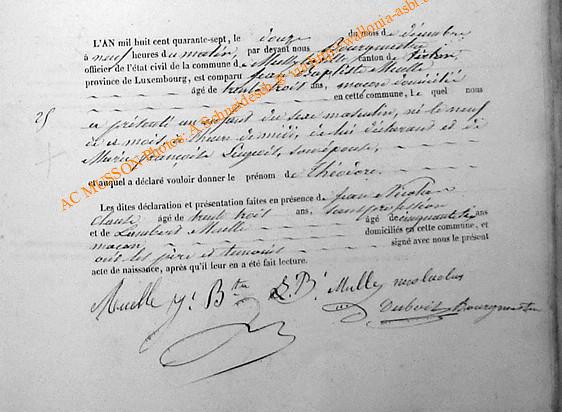 L'AN mil huit cent quarante-sept, le onze du mois de décembre
à neuf heures du matin, par devant nous Bourgmestre
officier de l'état civil de la commune de canton de Virton,
province de Luxembourg, est comparu Jean Baptiste Muelle
âgé de trente trois ans, maçon domicilié
en cette commune, Le quel nous
25
a présenté un enfant du sexe masculin, né le neuf
de ce mois à heure de midi, de lui déclarant et de
Marie françoise son épouse,
et auquel a déclaré vouloir donner le prénom de Théodore.
Les dites déclaration et présentation faites en présence de Jean Nicolas
Claude âgé de trente trois ans, sans profession
et de Lambert Muelle âgé de cinquante six ans
maçon domiciliés en cette commune, et
ont les père et témoins signé avec nous le présent
acte de naissance, après qu'il leur en a été fait lecture.
Muelle J. Bte L. Bt Muelle nicolas
Dubois Bourgmestre
AC MUSSON Photos: A. Schneidesch & via http://wallonia-asbl